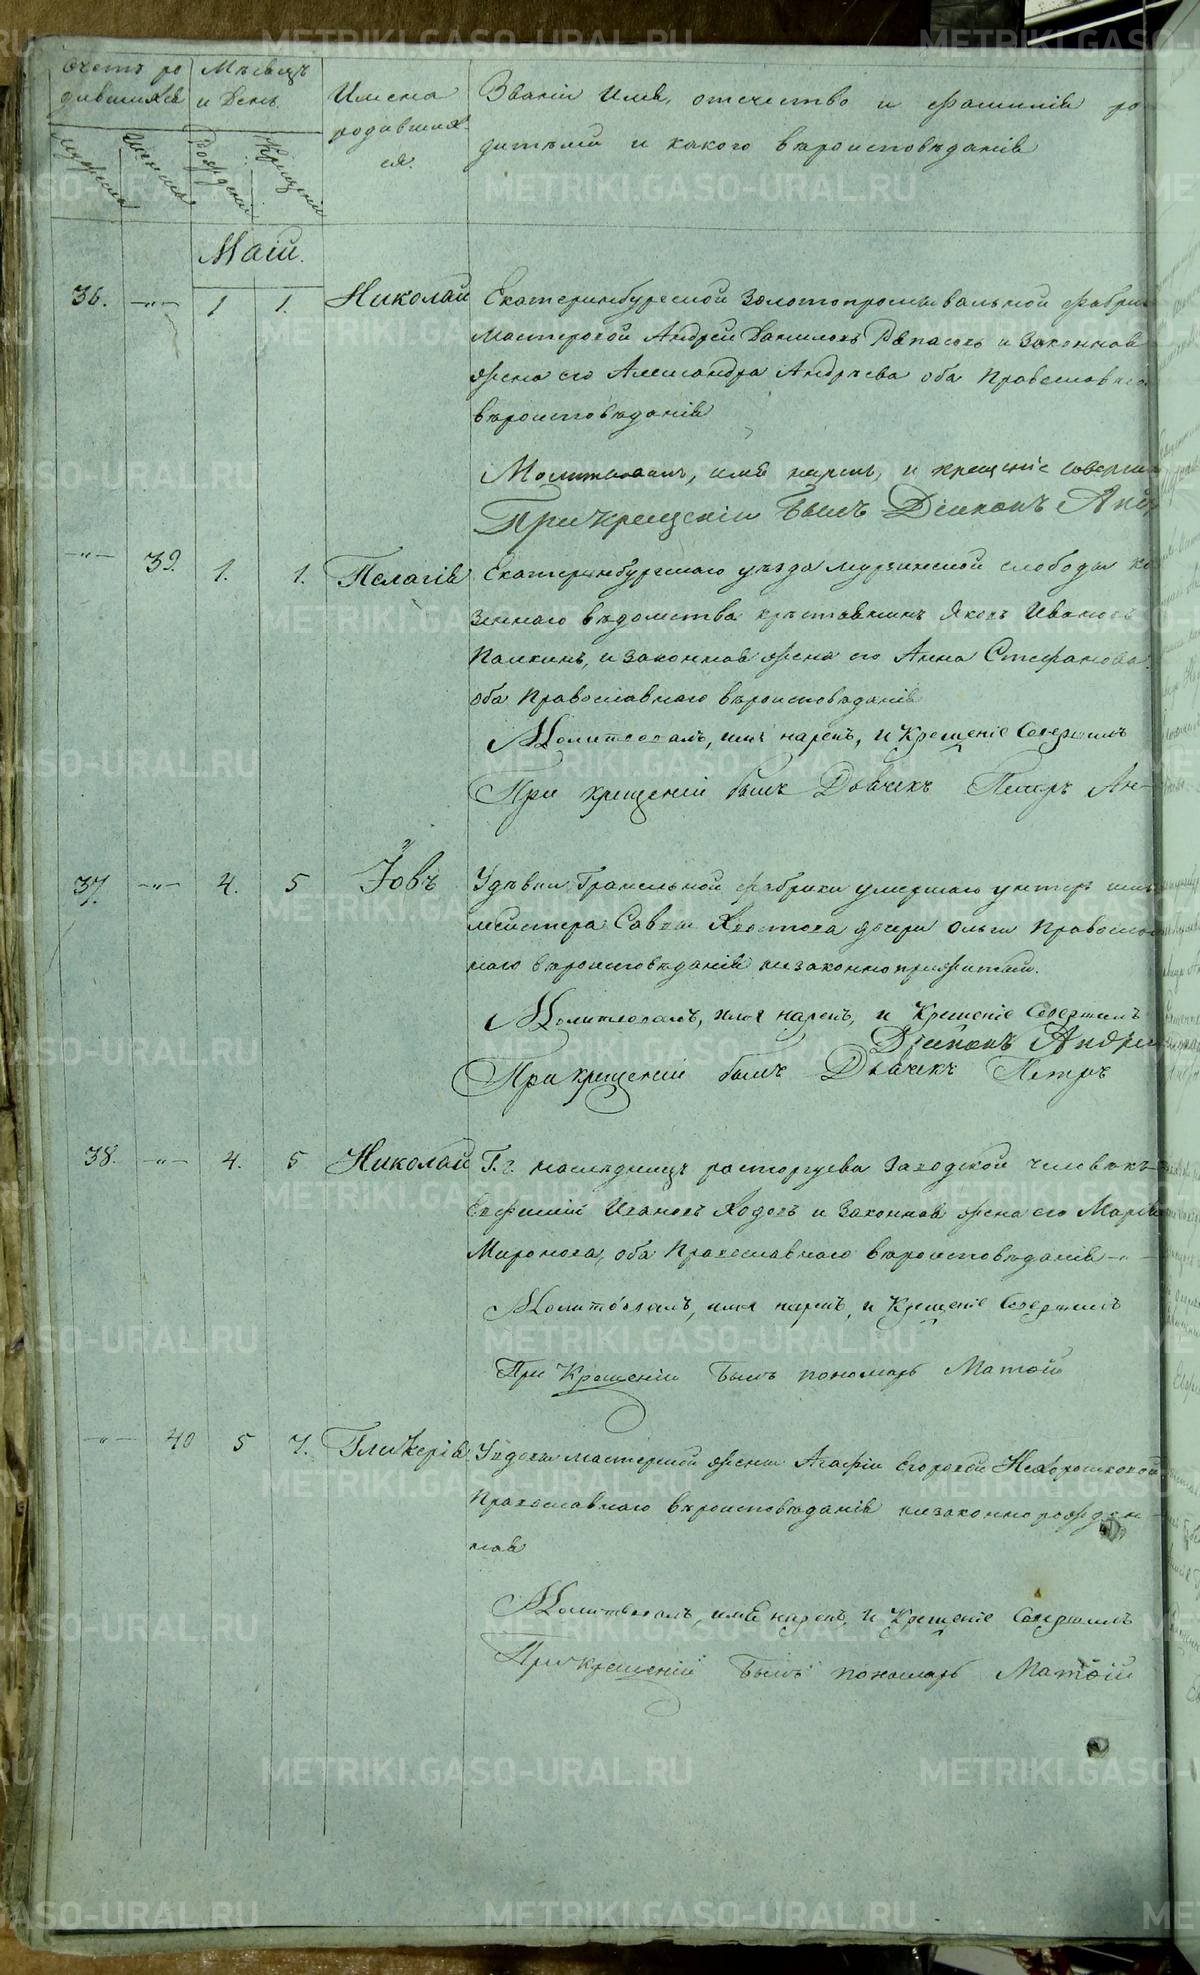 Счетъ ро
дившихся
Мѣсяцъ
и День.
Имена
родивших
ся.
Званіи Имя, отечество и фамилія ро
дителей и какого вѣроисповѣданія
мужеска
женска
Рожденія
Крещенія
Маій.
36. —"— 1 1. Николай Екатеринбургской Золотопромывальной фабри
Мастеровой Андрей Даниловъ и Законная
жена его Александра Андреева оба Православнаго
вѣроисповѣданія
Молитвовалъ, имя нарекъ, и крещеніе соверши
При Крещеніи былъ Діаконъ Анд
—"— 39. 1. 1. Пелагія Екатеринбургскаго уѣзда Мурзинской слободы ка
зеннаго вѣдомства крестьянинъ Яковъ Ивановъ
Палкинъ, и Законная жена его Анна Стефанова
оба Православнаго вѣроисповѣданія
Молитвовалъ, имя нарекъ, и Крещеніе Совершилъ
При крещеніи былъ Дьячекъ Петръ Ан-
37. —"— 4. 5 Іовъ Удѣвки Гранильной фабрики умершаго унтеръ
мейстера Савы Хвостова дочери Ольги Православ
наго вѣроисповѣданія незаконноприжитый.
Молитвовалъ, имя нарекъ, и Крещеніе Совершилъ
Діаконъ Андрей
При крещеніи былъ Дьячекъ Петръ
38. —"— 4. 5 Николай Г. г. наслѣдницъ расторгуева Заводской человѣкъ
Евфимій Ивановъ Ходовъ и Законная жена его Марія
Миронова, оба Православнаго вѣроисповѣданія —"—
Молитвовалъ, имя нарекъ, и Крещеніе Совершилъ
При Крещеніи былъ пономарь Матѳій
—"— 40 5 7. Гликерія Удовы мастерской жены Агафіи Егоровой Нехорошковой
Православнаго вѣроисповѣданія незаконнорожден
ная
Молитвовалъ, имя нарекъ, и Крещеніе Совершилъ
При крещеніи былъ пономарь Матѳій
METRIKI.GASO-URAL.RU